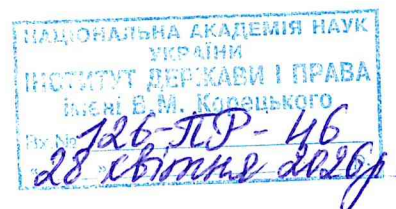 НАЦІОНАЛЬНА АКАДЕМІЯ НАУК
УКРАЇНИ
ІНСТИТУТ ДЕРЖАВИ І ПРАВА
імені В.М. Корецького
Вх.№ 126-ПР-46
28 квітня 2026р